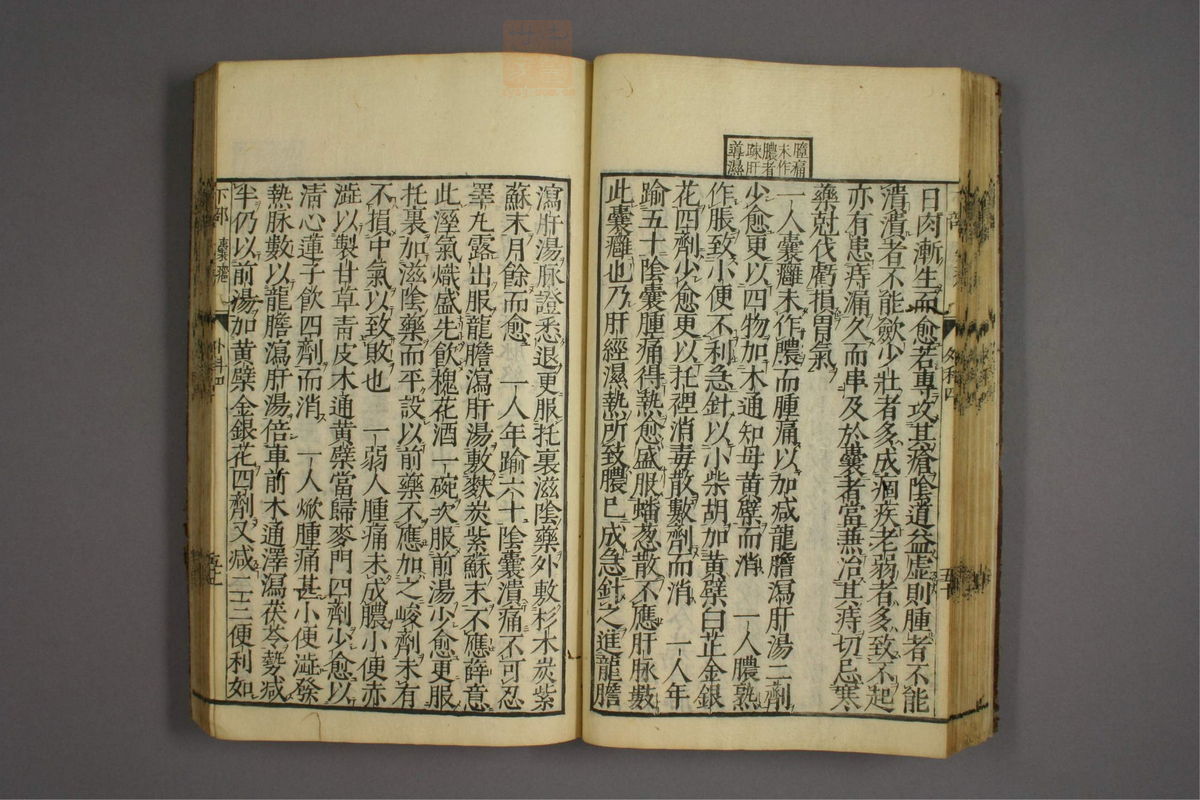 腫痛
未作
膿者
疎肝
導濕
日肉漸生而愈若專攻其瘡陰道益虛則腫者不能
潰潰者不能斂少壯者多成痼疾老弱者多致不起
亦有患痔漏久而串及於囊者當兼治其痔切忌寒
藥尅伐虧損胃氣
一人囊癰未作膿而腫痛以加减龍膽瀉肝湯二劑
少愈更以四物加木通知母黃檗而消 一人膿熟
作脹致小便不利急針以小柴胡加黃檗白芷金銀
花四劑少愈更以托裡消毒散數劑而消 一人年
踰五十陰囊腫痛得熱愈盛服蟠葱散不應肝脉數
此囊癰也乃肝經濕熱所致膿已成急針之進龍膽
瀉肝湯脉證悉退更服托裏滋陰藥外敷杉木炭紫
蘇末月餘而愈 一人年踰六十陰囊潰痛不可忍
睪丸露出服龍膽瀉肝湯敷麩炭紫蘇末不應薛意
此溼氣熾盛先飲槐花酒一碗次服前湯少愈更服
托裏加滋陰藥而平設以前藥不應加之峻劑未有
不損中氣以致敗也 一弱人腫痛未成膿小便赤
澁以製甘草青皮木通黃檗當歸麥門四劑少愈以
清心蓮子飲四劑而消 一人焮腫痛甚小便澁發
熱脉數以龍膽瀉肝湯倍車前木通澤瀉茯苓勢减
半仍以前湯加黃檗金銀花四劑又减二三便利如
下部 囊癰
外科四